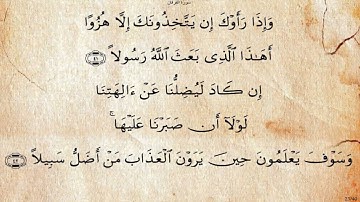 سورة الفرقان
وَإِذَا رَأَوْكَ إِن يَتَّخِذُونَكَ إِلَّا هُزُوًا
أَهَٰذَا ٱلَّذِى بَعَثَ ٱللَّهُ رَسُولًا ﴿٤١﴾
إِن كَادَ لَيُضِلُّنَا عَنْ ءَالِهَتِنَا
لَوْلَآ أَن صَبَرْنَا عَلَيْهَا ۚ
وَسَوْفَ يَعْلَمُونَ حِينَ يَرَوْنَ ٱلْعَذَابَ مَنْ أَضَلُّ سَبِيلًا ﴿٤٢﴾